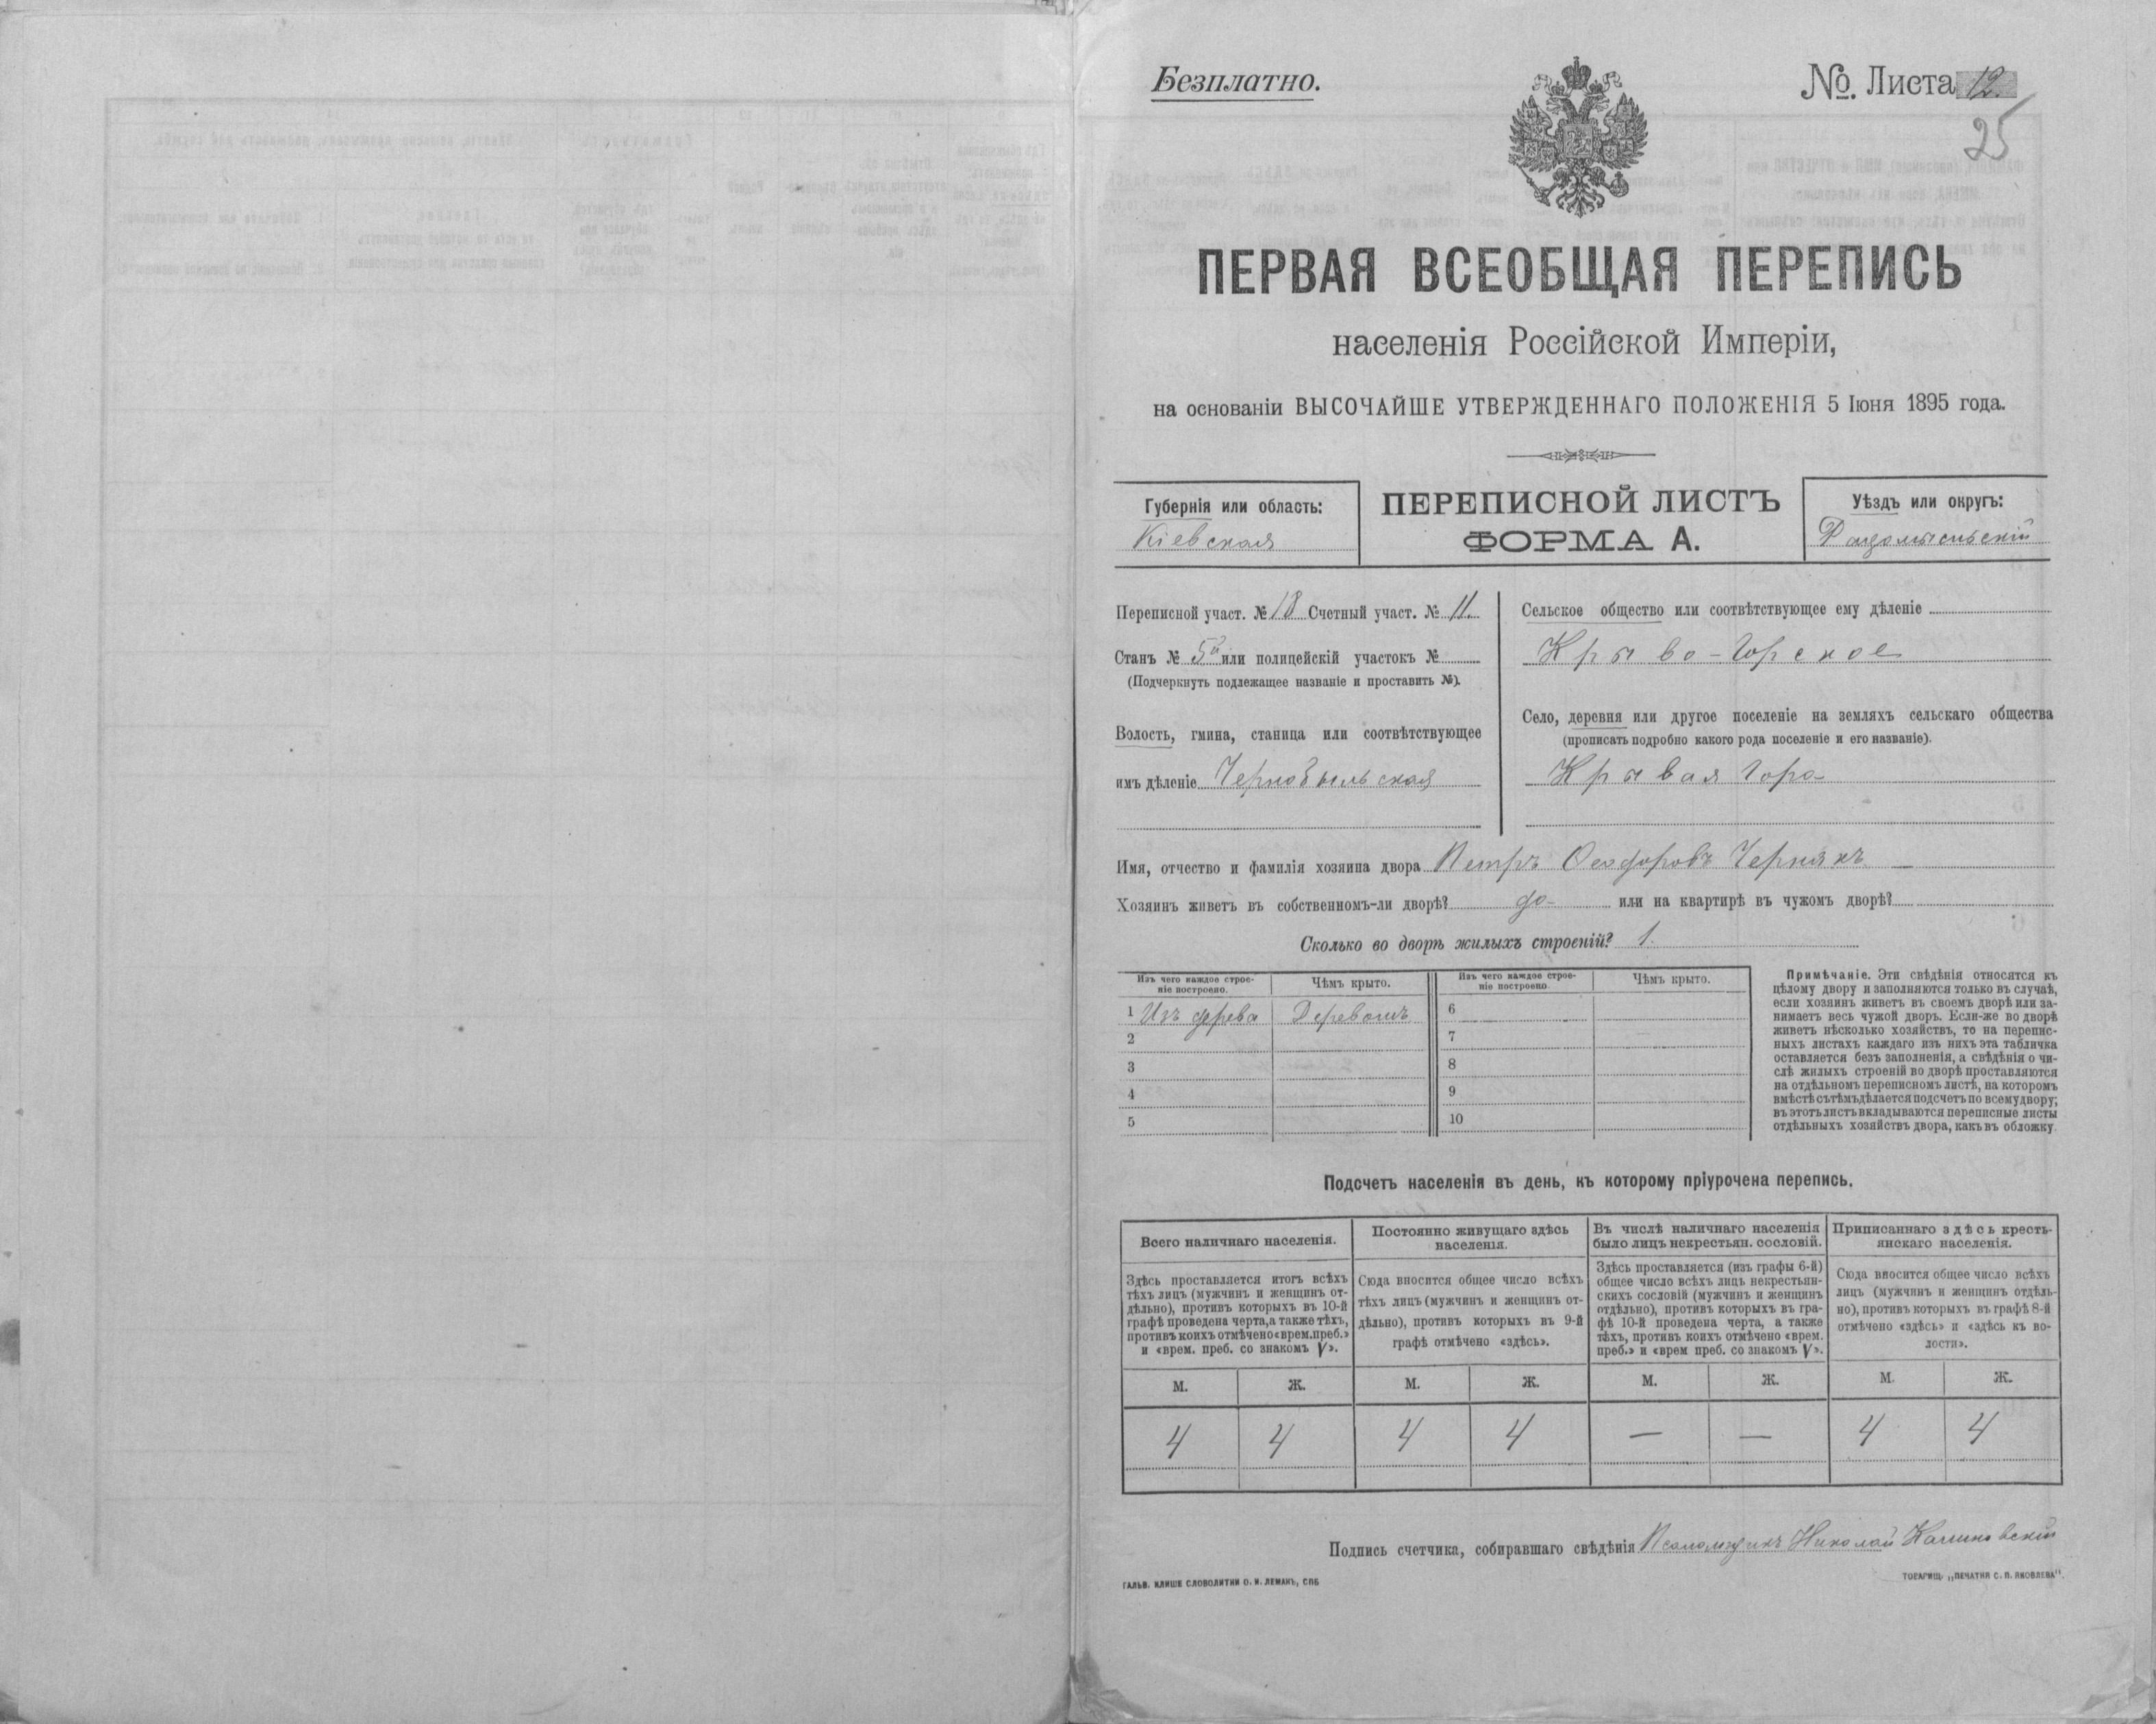 Безплатно.
№. Листа 12.
25
ПЕРВАЯ ВСЕОБЩАЯ ПЕРЕПИСЬ
населенія Россійской Имперіи,
на основаніи ВЫСОЧАЙШЕ УТВЕРЖДЕННАГО ПОЛОЖЕНІЯ 5 Іюня 1895 года.
Губернія или область:
Кіевская
ПЕРЕПИСНОЙ ЛИСТЪ
ФОРМА А.
Уѣздъ или округъ:
Радомысльскій
Переписной участ. № 18 Счетный участ. № 11.
Станъ № 5й или полицейскій участокъ №
(Подчеркнуть подлежащее названіе и проставить №).
Волость, гмина, станица или соотвѣтствующее
имъ дѣленіе Чернобыльская
Сельское общество или соотвѣтствующее ему дѣленіе
Крыво-Горское
Село, деревня или другое поселеніе на земляхъ сельскаго общества
(прописать подробно какого рода поселеніе и его названіе).
Крывая Гора
Имя, отчество и фамилія хозяина двора Петръ Феодоровъ Чернякъ
Хозяинъ живетъ въ собственномъ-ли дворѣ? да или на квартирѣ въ чужомъ дворѣ?
Сколько во дворѣ жилыхъ строеній? 1.
Изъ чего каждое строе-
ніе построено.
Чѣмъ крыто.
Изъ чего каждое строе-
ніе построено.
Чѣмъ крыто.
1 Изъ дерева Деревомъ 6
2 7
3 8
4 9
5 10
Примѣчаніе. Эти свѣдѣнія относятся къ
цѣлому двору и заполняются только въ случаѣ,
если хозяинъ живетъ въ своемъ дворѣ или за-
нимаетъ весь чужой дворъ. Если-же во дворѣ
живетъ нѣсколько хозяйствъ, то на перепис-
ныхъ листахъ каждаго изъ нихъ эта табличка
оставляется безъ заполненія, а свѣдѣнія о чи-
слѣ жилыхъ строеній во дворѣ проставляются
на отдѣльномъ переписномъ листѣ, на которомъ
вмѣстѣ съ тѣмъ дѣлается подсчетъ по всему двору;
въ этотъ листъ вкладываются переписные листы
отдѣльныхъ хозяйствъ двора, какъ въ обложку.
Подсчетъ населенія въ день, къ которому пріурочена перепись.
Всего наличнаго населенія.
Здѣсь проставляется итогъ всѣхъ
тѣхъ лицъ (мужчинъ и женщинъ от-
дѣльно), противъ которыхъ въ 10-й
графѣ проведена черта, а также тѣхъ,
противъ коихъ отмѣчено «врем. преб.»
и «врем. преб. со знакомъ V».
Постоянно живущаго здѣсь
населенія.
Сюда вносится общее число всѣхъ
тѣхъ лицъ (мужчинъ и женщинъ от-
дѣльно), противъ которыхъ въ 9-й
графѣ отмѣчено «здѣсь».
Въ числѣ наличнаго населенія
было лицъ некрестьян. сословій.
Здѣсь проставляется (изъ графы 6-й)
общее число всѣхъ лицъ некрестьян-
скихъ сословій (мужчинъ и женщинъ
отдѣльно), противъ которыхъ въ гра-
фѣ 10-й проведена черта, а также
тѣхъ, противъ коихъ отмѣчено «врем.
преб.» и «врем преб. со знакомъ V».
Приписаннаго здѣсь кресть-
янскаго населенія.
Сюда вносится общее число всѣхъ
лицъ (мужчинъ и женщинъ отдѣль-
но), противъ которыхъ въ графѣ 8-й
отмѣчено «здѣсь» и «здѣсь къ во-
лости».
М. Ж. М. Ж. М. Ж. М. Ж.
4 4 4 4 — — 4 4
Подпись счетчика, собиравшаго свѣдѣнія Псаломщикъ Николай Калиновскій
ГАЛЬВ. КЛИШЕ СЛОВОЛИТНИ О. И. ЛЕМАНЪ, СПБ
ТОВАРИЩ. „ПЕЧАТНЯ С. П. ЯКОВЛЕВА".